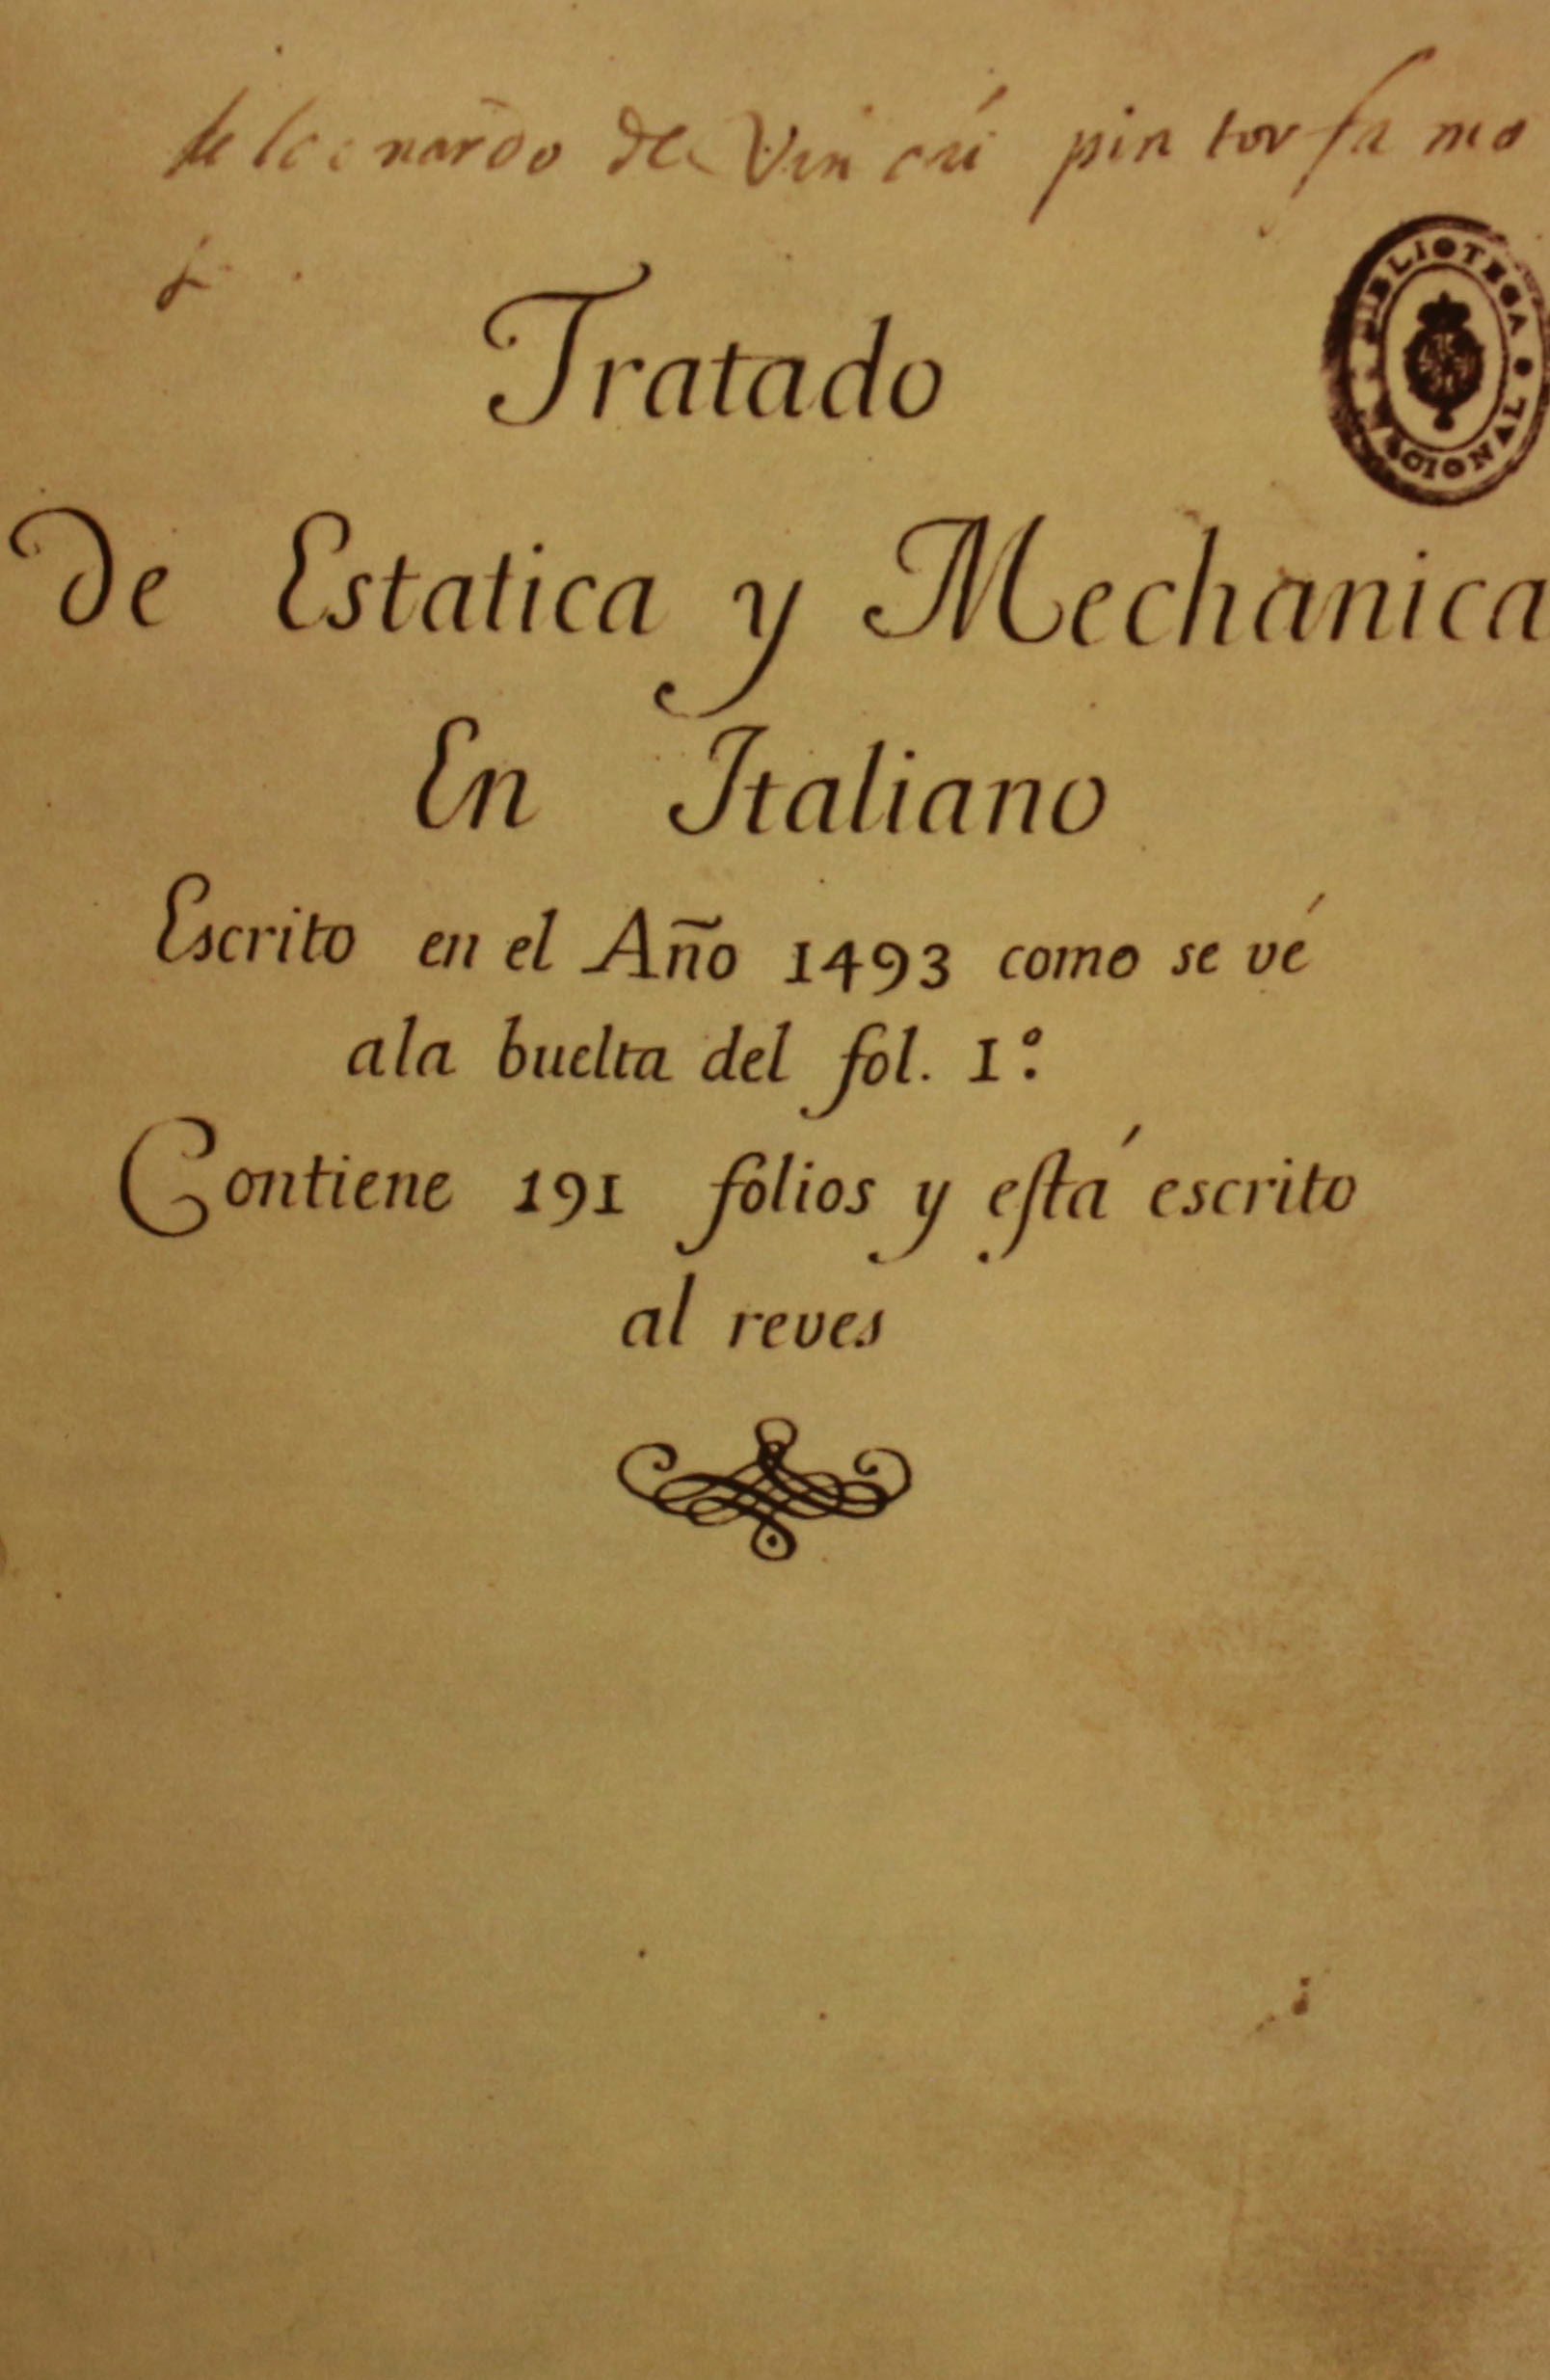 de leonardo de Vinci pintor famo
Tratado
BIBLIOTECA NACIONAL
de Estatica y Mechanica
En Italiano
Escrito en el Año 1493 como se vé
ala buelta del fol. 1º.
Contiene 191 folios y eſtá escrito
al reves